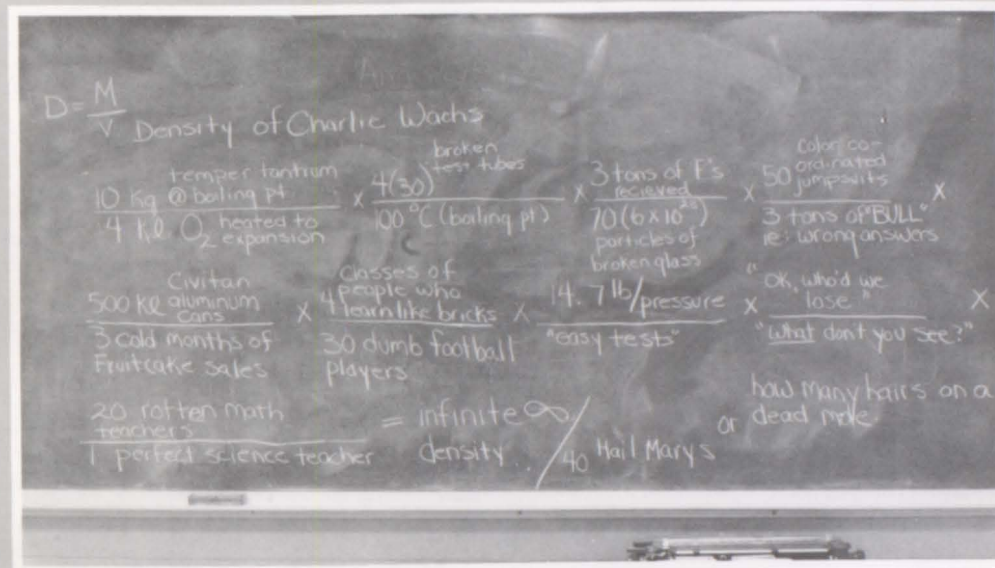 D = M
V
Density of Charlie Wachs
10 kg temper tantrum @ boiling pt.
4 kl O₂ heated to expansion
x
4(30) broken test tubes
100 °C (boiling pt)
x
3 tons of F's recieved
70 (6 x 10²³) particles of broken glass
x
50 color co-ordinated jumpsuits
3 tons of "BULL" ie: wrong answers
x
500 kl Civitan aluminum cans
3 cold months of Fruitcake sales
x
4 classes of people who learn like bricks
30 dumb football players
x
14.7 lb/pressure
"easy tests"
x
"Ok, who'd we lose"
"What don't you see?"
x
20 rotten math teachers
1 perfect science teacher
= infinite ∞ density.. / 40 Hail Marys
or
how many hairs on a dead mole